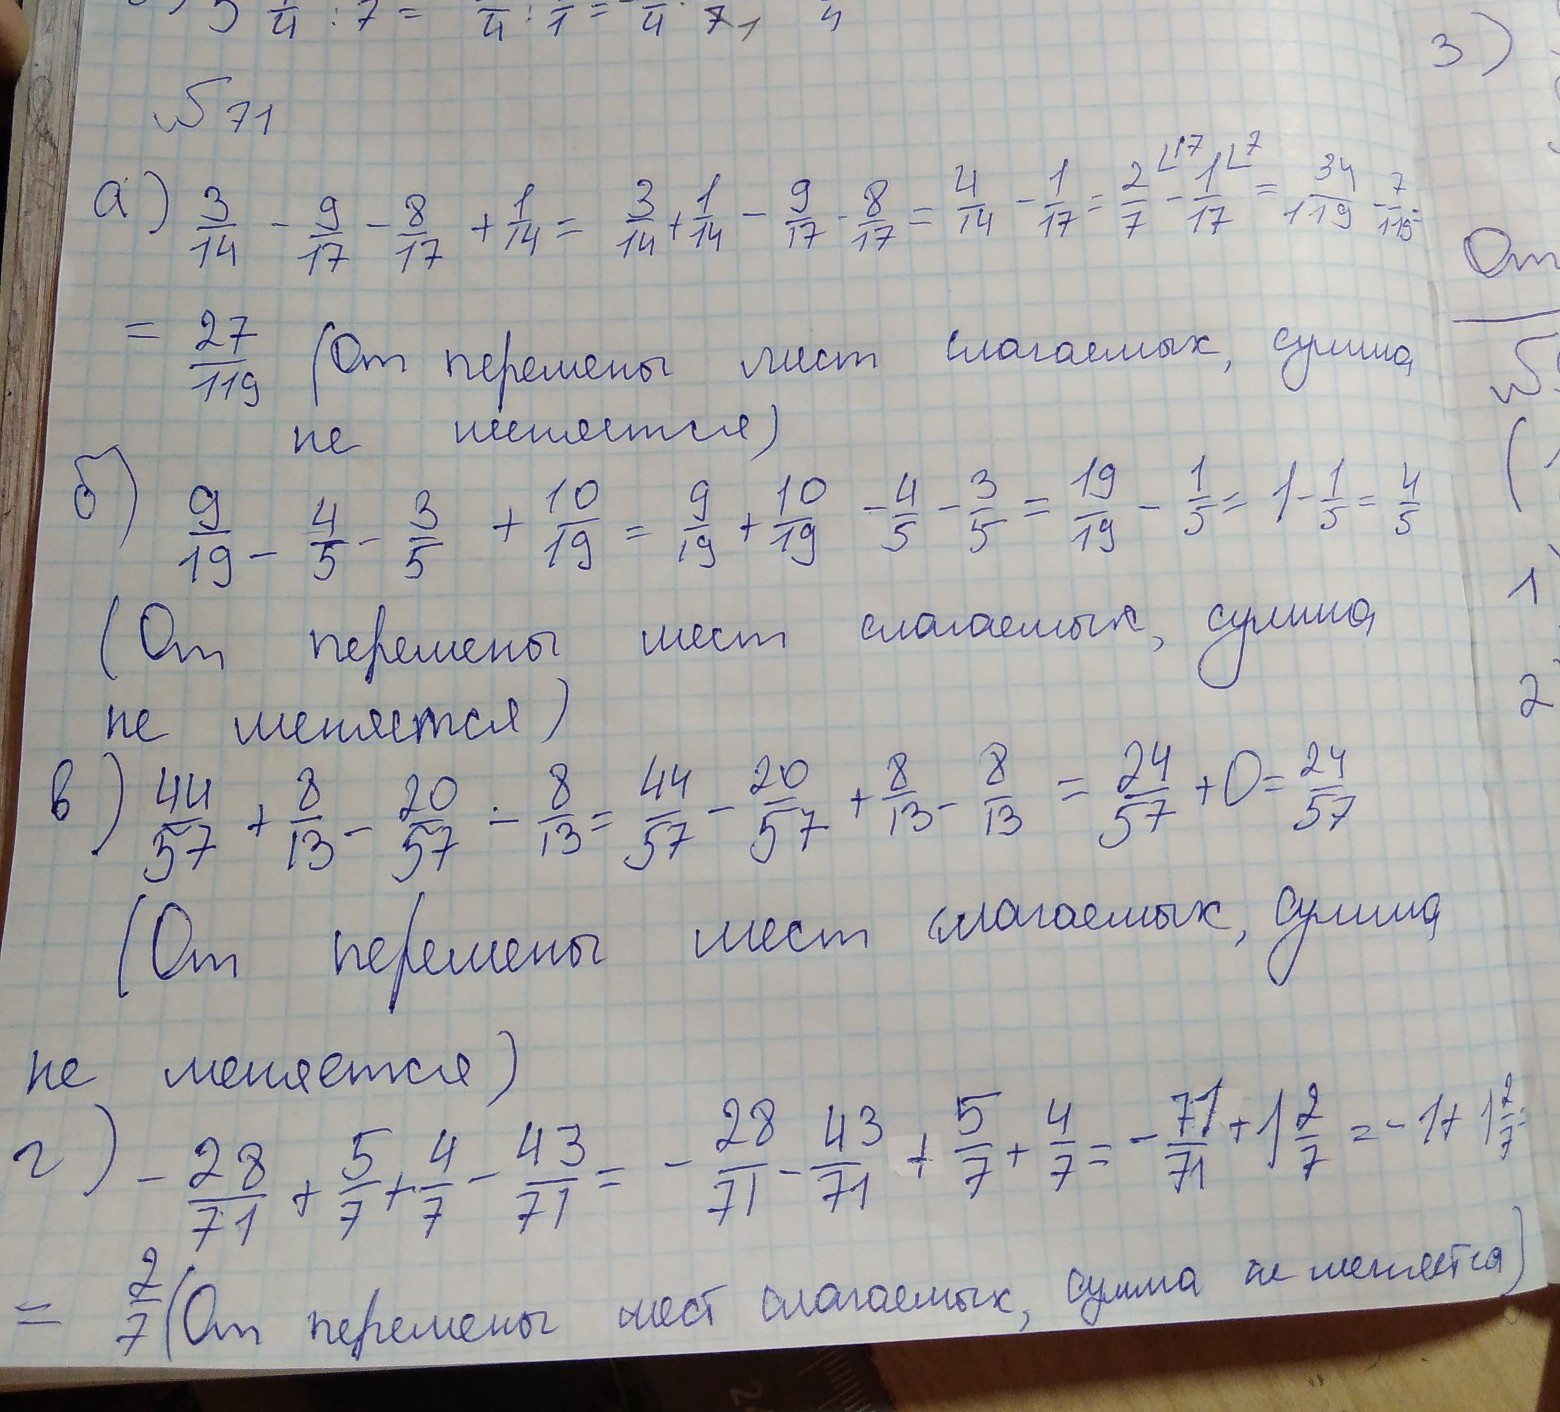 3/4 : 7 = /4 : /1 = /4 · 7, 4
№71
а) 3/14 - 9/17 - 8/17 + 1/14 = 3/14 + 1/14 - 9/17 - 8/17 = 4/14 - 1/17 = 2/7 ∟17 - 1/17 ∟7 = 34/119 - 7/119 =
= 27/119 (От перемены мест слагаемых, сумма
не меняется)
б) 9/19 - 4/5 - 3/5 + 10/19 = 9/19 + 10/19 - 4/5 - 3/5 = 19/19 - 1/5 = 1 - 1/5 = 4/5
(От перемены мест слагаемых, сумма
не меняется)
в) 44/57 + 8/13 - 20/57 - 8/13 = 44/57 - 20/57 + 8/13 - 8/13 = 24/57 + 0 = 24/57
(От перемены мест слагаемых, сумма
не меняется)
г) - 28/71 + 5/7 + 4/7 - 43/71 = - 28/71 - 43/71 + 5/7 + 4/7 = - 71/71 + 1 2/7 = - 1 + 1 2/7 =
= 2/7 (От перемены мест слагаемых, сумма не меняется)
3)
От
№
(
1
2